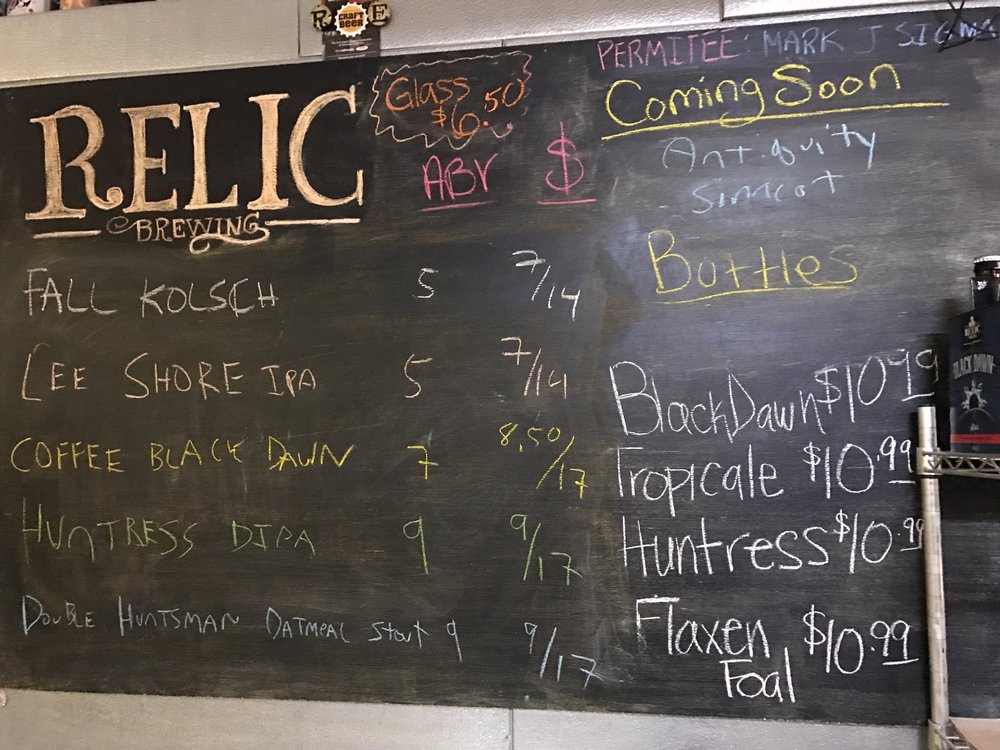 R E
CRAFT BEER
PERMITEE: MARK J SIGMA
RELIC
BREWING
Glass
$6.50
ABV $
FALL KOLSCH 5 7/14
LEE SHORE IPA 5 7/14
COFFEE BLACK DAWN 7 8.50/17
HUNTRESS DIPA 9 9/17
DOUBLE HUNTSMAN OATMEAL Stout 9 9/17
Coming Soon
Antiquity
Simcot
Bottles
Black Dawn $10.99
Tropicale $10.99
Huntress $10.99
Flaxen Foal $10.99
RELIC
BLACK DAWN